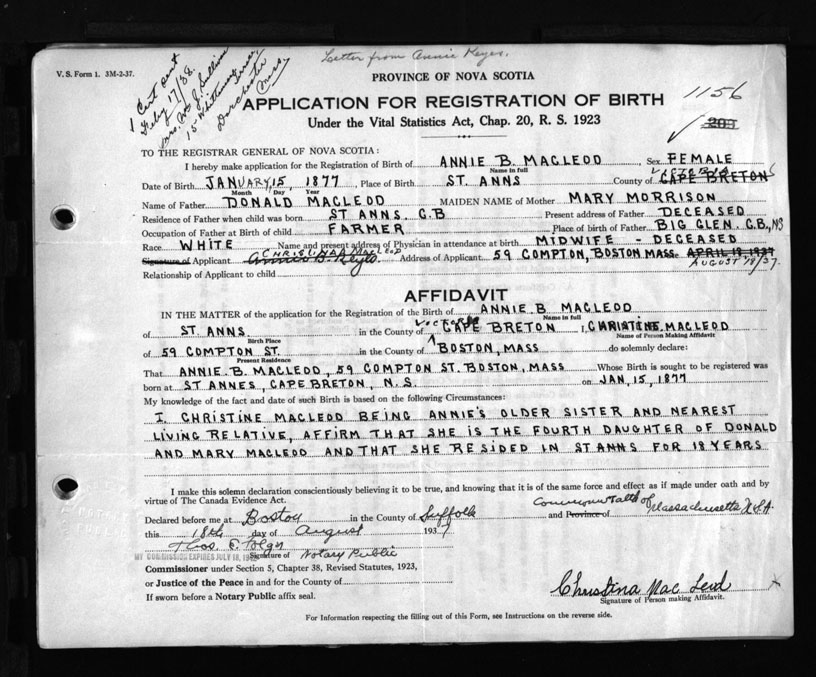 V. S. Form 1. 3M-2-37.
1 Cert sent
Feby 17/38.
Mrs. Wm J. Sullivan
15 Terrace,
Dorchester
Mass.
Letter from Annie Keyes.
PROVINCE OF NOVA SCOTIA
APPLICATION FOR REGISTRATION OF BIRTH
1156
Under the Vital Statistics Act, Chap. 20, R. S. 1923
203
TO THE REGISTRAR GENERAL OF NOVA SCOTIA:
I hereby make application for the Registration of Birth of ANNIE B. MACLEOD Sex FEMALE
Name in full
VICTORIA
Date of Birth JANUARY, 15, 1877, Place of Birth ST. ANNS County of CAPE BRETON
Month Day Year
Name of Father DONALD MACLEOD MAIDEN NAME of Mother MARY MORRISON
Residence of Father when child was born ST ANNS. C.B Present address of Father DECEASED
Occupation of Father at Birth of Child FARMER Place of birth of Father BIG GLEN, C.B., NS
Race WHITE Name and present address of Physician in attendance at birth MIDWIFE - DECEASED
CHRISTINA MACLEOD
Signature of Applicant Annie B. Keyes. Address of Applicant 59 COMPTON, BOSTON MASS APRIL 18, 1937
AUGUST 18/37.
Relationship of Applicant to child
AFFIDAVIT
IN THE MATTER of the application for the Registration of the Birth of ANNIE B. MACLEOD
Name in full
Victoria
of ST. ANNS in the County of CAPE BRETON I, CHRISTINE MACLEOD
Birth Place Name of Person Making Affidavit
of 59 COMPTON ST. in the County of BOSTON, MASS do solemnly declare:
Present Residence
That ANNIE. B. MACLEOD, 59 COMPTON ST. BOSTON, MASS Whose Birth is sought to be registered was
born at ST ANNES, CAPE BRETON, N.S. on JAN, 15, 1877
My knowledge of the fact and date of such Birth is based on the following Circumstances:
I. CHRISTINE MACLEOD BEING ANNIE'S OLDER SISTER AND NEAREST
LIVING RELATIVE, AFFIRM THAT SHE IS THE FOURTH DAUGHTER OF DONALD
AND MARY MACLEOD AND THAT SHE RESIDED IN ST ANNS FOR 18 YEARS
I make this solemn declaration conscientiously believing it to be true, and knowing that it is of the same force and effect as if made under oath and by
virtue of The Canada Evidence Act.
Commonwealth of
Declared before me at Boston in the County of Suffolk and Province of Massachusetts U.S.A.
this 18th day of August 1937
Thos.
MY COMMISSION EXPIRES JULY 18, Signature of Notary Public
Commissioner under Section 5, Chapter 38, Revised Statutes, 1923,
or Justice of the Peace in and for the County of
If sworn before a Notary Public affix seal.
Christina Mac Leod
Signature of Person making Affidavit.
For Information respecting the filling out of this Form, see Instructions on the reverse side.